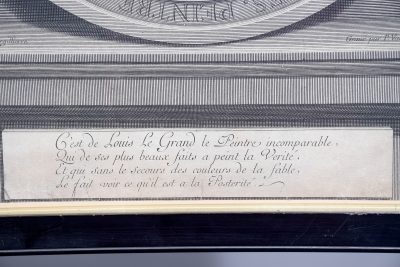 C'est de Louis Le Grand le Peintre incomparable,
Qui de ses plus beaux faits a peint la Verité,
Et qui sans le secours des couleurs de la fable,
Le fait voir ce qu'il est a la Posterité.